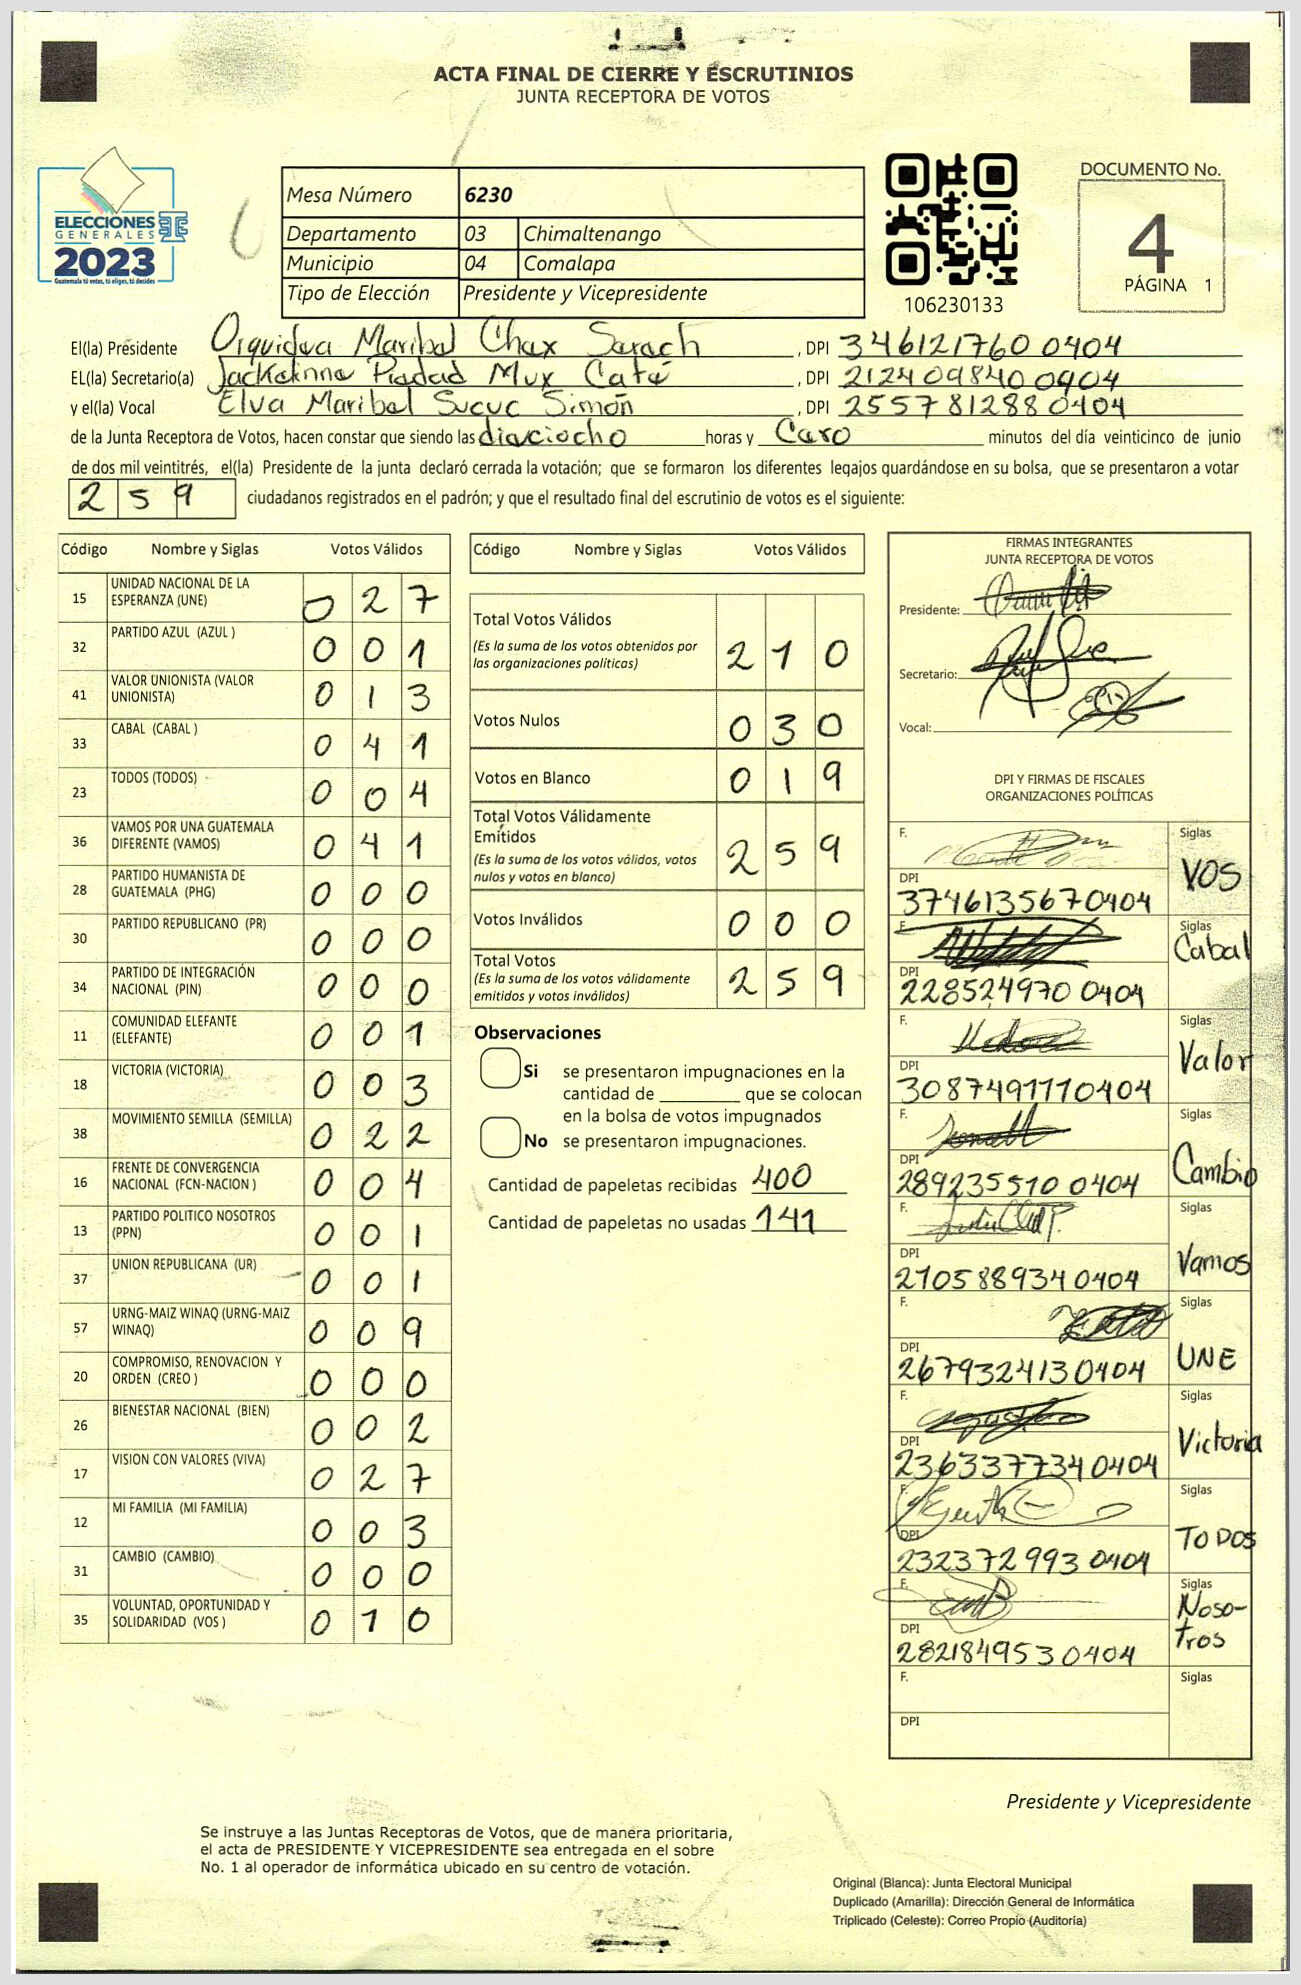 ACTA FINAL DE CIERRE Y ESCRUTINIOS
JUNTA RECEPTORA DE VOTOS
ELECCIONES
GENERALES
2023
Guatemala tú votas, tú eliges, tú decides
Mesa Número 6230
Departamento 03 Chimaltenango
Municipio 04 Comalapa
Tipo de Elección Presidente y Vicepresidente
106230133
DOCUMENTO No.
4
PÁGINA 1
El(la) Presidente Orquidea Maribel Chex Sarach, DPI 346121760 0404
EL(la) Secretario(a) Piedad Mux Caté, DPI 212409840 0904
y el(la) Vocal Elva Maribel Sucuc Simón, DPI 255781288 0404
de la Junta Receptora de Votos, hacen constar que siendo las dieciocho horas y Cero minutos del día veinticinco de junio
de dos mil veintitrés, el(la) Presidente de la junta declaró cerrada la votación; que se formaron los diferentes legajos guardándose en su bolsa, que se presentaron a votar
259 ciudadanos registrados en el padrón; y que el resultado final del escrutinio de votos es el siguiente:
Código Nombre y Siglas Votos Válidos
15 UNIDAD NACIONAL DE LA ESPERANZA (UNE) 0 2 7
32 PARTIDO AZUL (AZUL ) 0 0 1
41 VALOR UNIONISTA (VALOR UNIONISTA) 0 1 3
33 CABAL (CABAL ) 0 4 1
23 TODOS (TODOS) 0 0 4
36 VAMOS POR UNA GUATEMALA DIFERENTE (VAMOS) 0 4 1
28 PARTIDO HUMANISTA DE GUATEMALA (PHG) 0 0 0
30 PARTIDO REPUBLICANO (PR) 0 0 0
34 PARTIDO DE INTEGRACIÓN NACIONAL (PIN) 0 0 0
11 COMUNIDAD ELEFANTE (ELEFANTE) 0 0 1
18 VICTORIA (VICTORIA) 0 0 3
38 MOVIMIENTO SEMILLA (SEMILLA) 0 2 2
16 FRENTE DE CONVERGENCIA NACIONAL (FCN-NACION ) 0 0 4
13 PARTIDO POLITICO NOSOTROS (PPN) 0 0 1
37 UNION REPUBLICANA (UR) 0 0 1
57 URNG-MAIZ WINAQ (URNG-MAIZ WINAQ) 0 0 9
20 COMPROMISO, RENOVACION Y ORDEN (CREO ) 0 0 0
26 BIENESTAR NACIONAL (BIEN) 0 0 2
17 VISION CON VALORES (VIVA) 0 2 7
12 MI FAMILIA (MI FAMILIA) 0 0 3
31 CAMBIO (CAMBIO) 0 0 0
35 VOLUNTAD, OPORTUNIDAD Y SOLIDARIDAD (VOS ) 0 1 0
Código Nombre y Siglas Votos Válidos
Total Votos Válidos 2 1 0
(Es la suma de los votos obtenidos por
las organizaciones políticas)
Votos Nulos 0 3 0
Votos en Blanco 0 1 9
Total Votos Válidamente
Emitidos 2 5 9
(Es la suma de los votos válidos, votos
nulos y votos en blanco)
Votos Inválidos 0 0 0
Total Votos 2 5 9
(Es la suma de los votos válidamente
emitidos y votos inválidos)
Observaciones
Si se presentaron impugnaciones en la
cantidad de ________ que se colocan
en la bolsa de votos impugnados
No se presentaron impugnaciones.
Cantidad de papeletas recibidas 400
Cantidad de papeletas no usadas 141
FIRMAS INTEGRANTES
JUNTA RECEPTORA DE VOTOS
Presidente:
Secretario:
Vocal:
DPI Y FIRMAS DE FISCALES
ORGANIZACIONES POLÍTICAS
F. Siglas VOS
DPI 374613567 0404
F. Siglas Cabal
DPI 228524970 0404
F. Siglas Valor
DPI 308749111 0404
F. Siglas Cambio
DPI 289235510 0404
F. Siglas Vamos
DPI 210588934 0404
F. Siglas UNE
DPI 267932413 0404
F. Siglas Victoria
DPI 236337734 0404
F. Siglas TODOS
DPI 232372993 0404
F. Siglas Noso-
tros
DPI 282184953 0404
F. Siglas
DPI
Presidente y Vicepresidente
Se instruye a las Juntas Receptoras de Votos, que de manera prioritaria,
el acta de PRESIDENTE Y VICEPRESIDENTE sea entregada en el sobre
No. 1 al operador de informática ubicado en su centro de votación.
Original (Blanca): Junta Electoral Municipal
Duplicado (Amarilla): Dirección General de Informática
Triplicado (Celeste): Correo Propio (Auditoría)